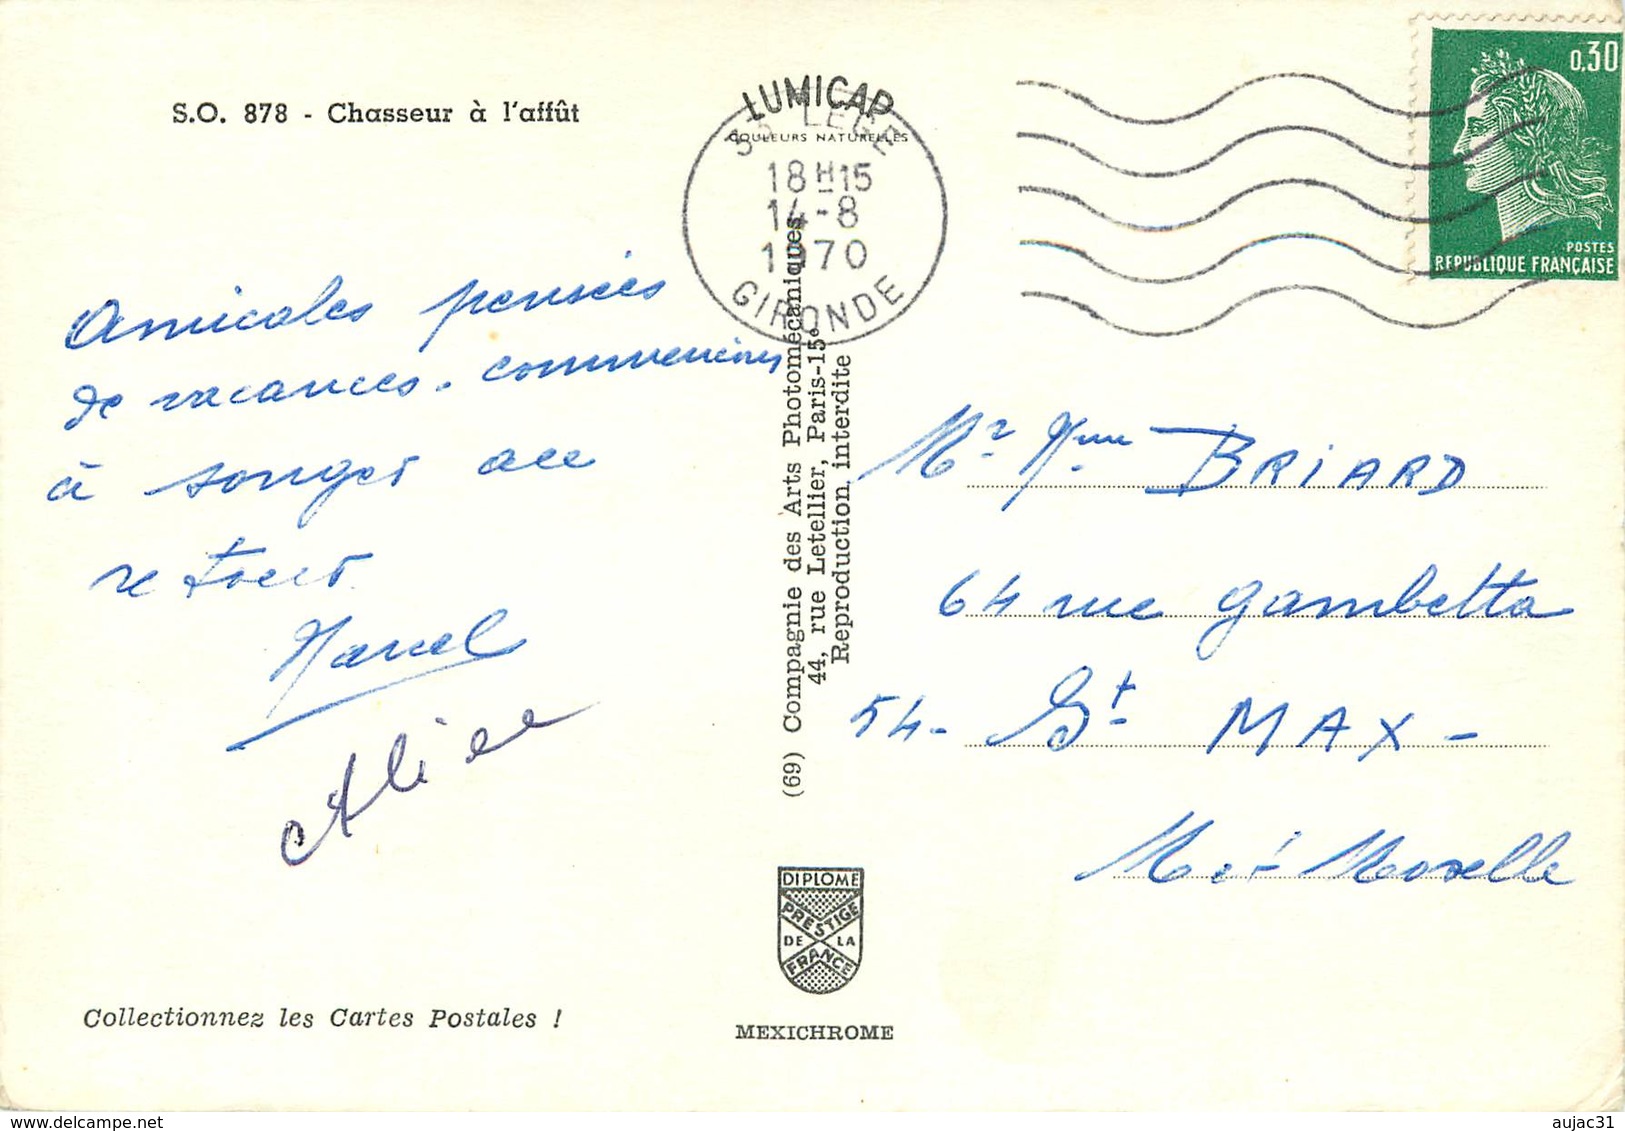 S.O. 878 - Chasseur à l'affût
LUMICAP
COULEURS NATURELLES
33 LEGE
18H15
14-8
1970
GIRONDE
0,30
POSTES
REPUBLIQUE FRANÇAISE
Amicales pensées
de vacances. commençons
à songer au
retour
Marcel
Alice
(69) Compagnie des Arts Photomécaniques
44, rue Letellier, Paris-15e
Reproduction interdite
Mr Mme BRIARD
64 rue Gambetta
54 - St MAX -
M et Moselle
DIPLOME
PRESTIGE
DE LA
FRANCE
Collectionnez les Cartes Postales !
MEXICHROME
www.delcampe.net
aujac31